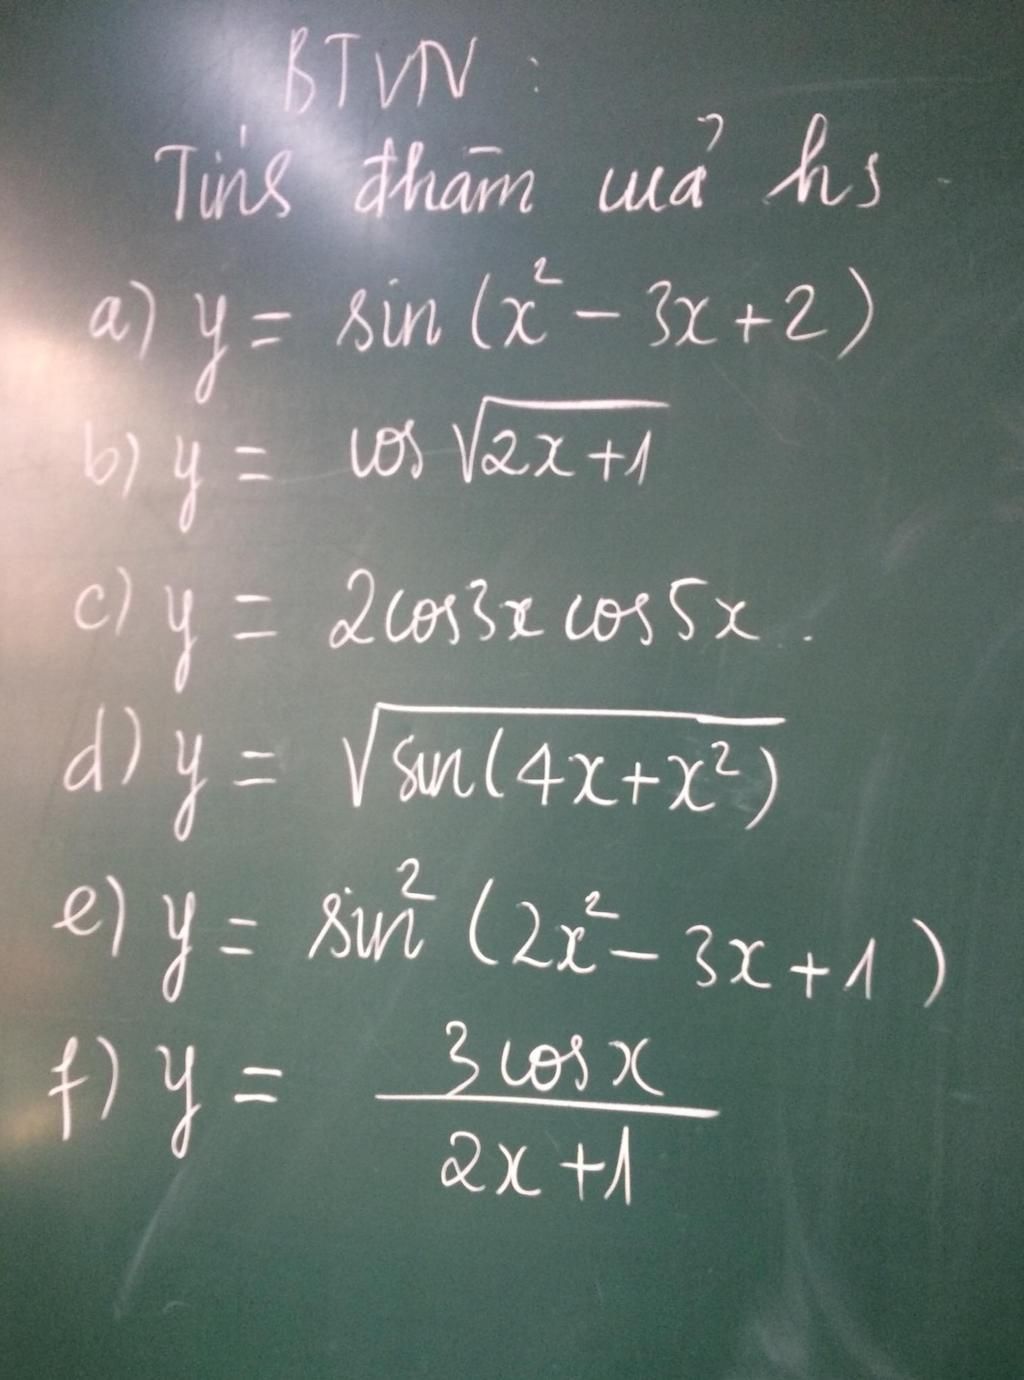 BTVN :
Tính đhàm của hs
a) y = sin (x² - 3x + 2)
b) y = cos √(2x + 1)
c) y = 2cos3x cos5x .
d) y = √(sin(4x + x²))
e) y = sin² (2x² - 3x + 1)
f) y = 3 cos x
2x + 1